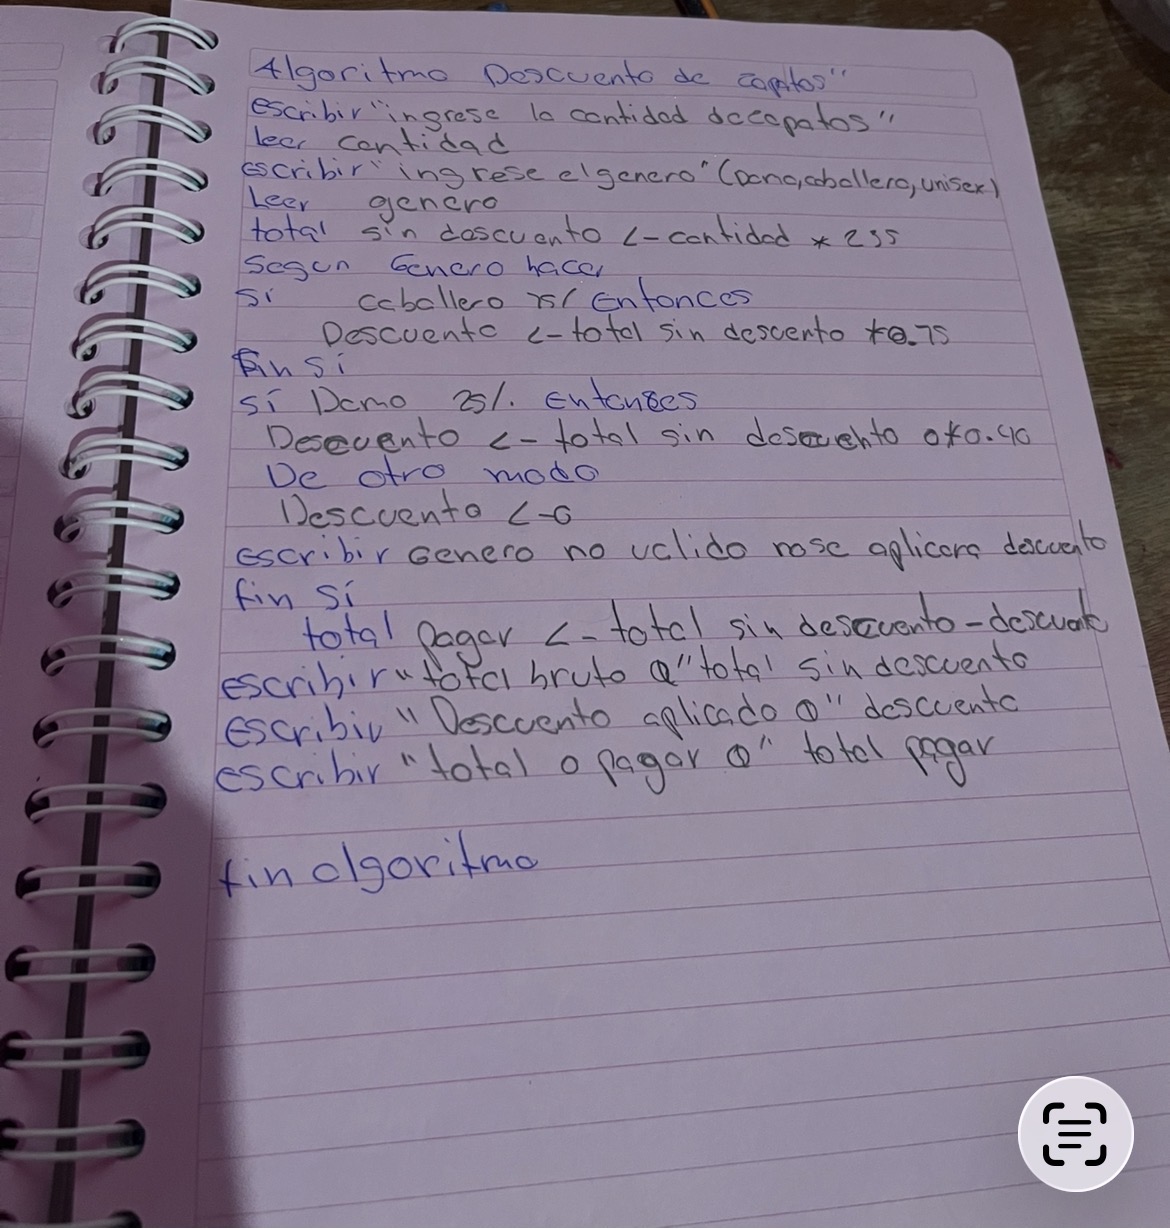 Algoritmo Descuento de zapatos"
escribir "ingrese la cantidad de zapatos"
leer cantidad
escribir "ingrese el genero" (Dama, caballero, unisex)
Leer genero
total sin descuento <- cantidad * 235
Segun Genero hacer
Si caballero Entonces
Descuento <- total sin descento *0.75
Fin si
si Dama 25%. Entonses
Descuento <- total sin descuento *0.40
De otro modo
Descuento <-0
escribir Genero no valido no se aplicara descuento
fin si
total pagar <- total sin descuento - descuento
escribir "total bruto a" total sin descuento
escribir "Descuento aplicado a" descuento
escribir "total a pagar a" total pagar
fin algoritmo